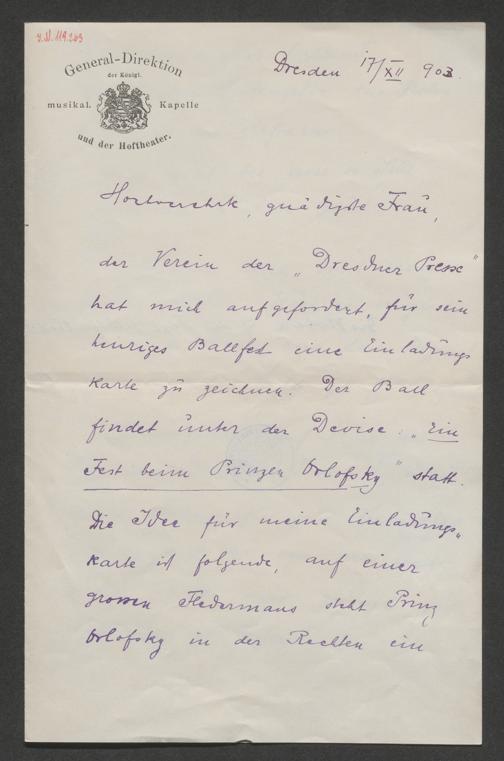 J.N. 119.203
General-Direktion
der Königl.
musikal. Kapelle
und der Hoftheater.
Dresden 17/XII 903.
Hochverehrte, gnädigste Frau,
der Verein der „Dresdner Presse"
hat mich aufgefordert, für sein
heuriges Ballfest eine Einladungs
Karte zu zeichnen. Der Ball
findet unter der Devise: „Ein
Fest beim Prinzen Orlofsky" statt.
Die Idee für meine Einladungs„
karte ist folgende, auf einer
grossen Fledermaus steht Prinz
Orlofsky in der Rechten ein